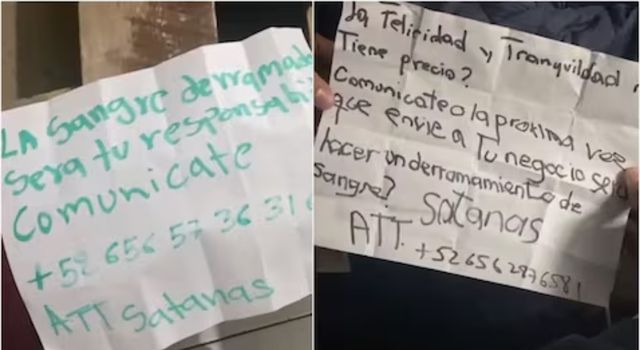 LA Sangre derramada
Sera tu responsabili
Comunicate
+52 656 57 36 31 6
ATT Satanas
La Felicidad y Tranquildad
Tiene precio?
Comunicateo la proxima vez
que envie a Tu negocio sera
hacer un derramamiento de
sangre? Satanas
ATT. +52 656 287 6581